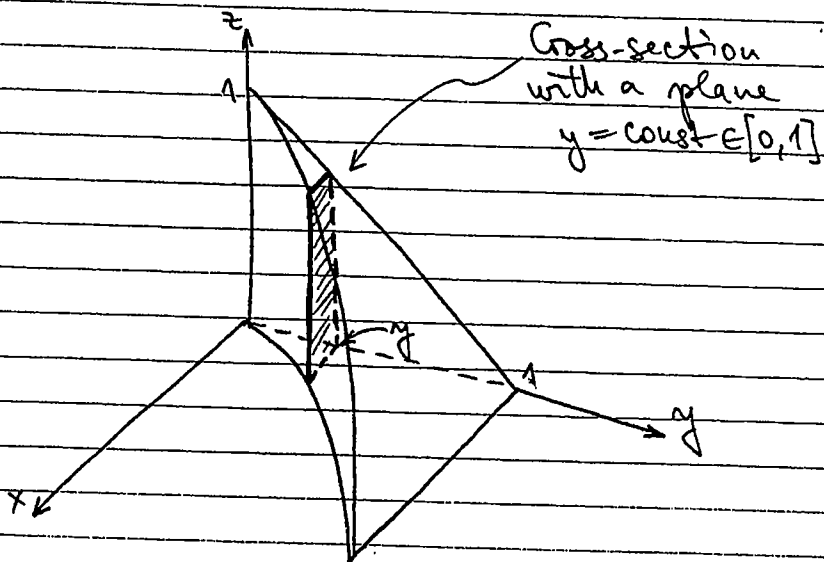 z
Cross-section
with a plane
y = const ∈ [0,1]
1
y
1
y
x